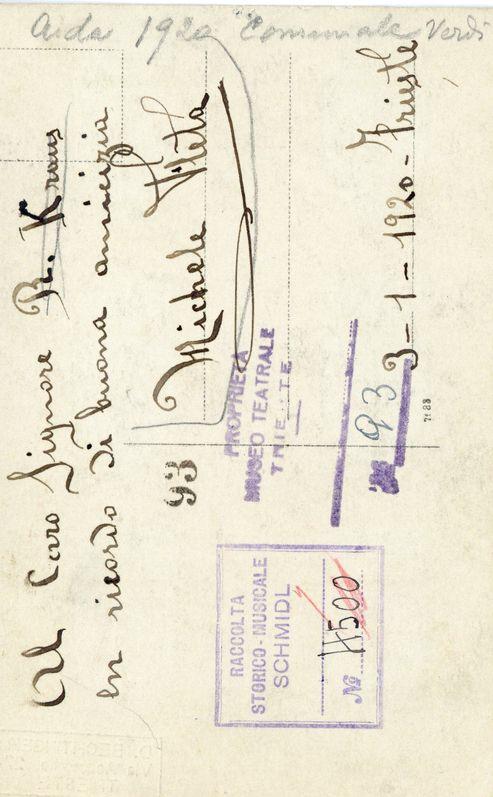 Aida 1920 Comunale Verdi
Al Caro Signore R. Kraus
en ricordo di buona amicizia
Michele Fleta
3-1-1920-Trieste
93
PROPRIETÀ
MUSEO TEATRALE
TRIESTE
93
7133
RACCOLTA
STORICO-MUSICALE
SCHMIDL
No 4500